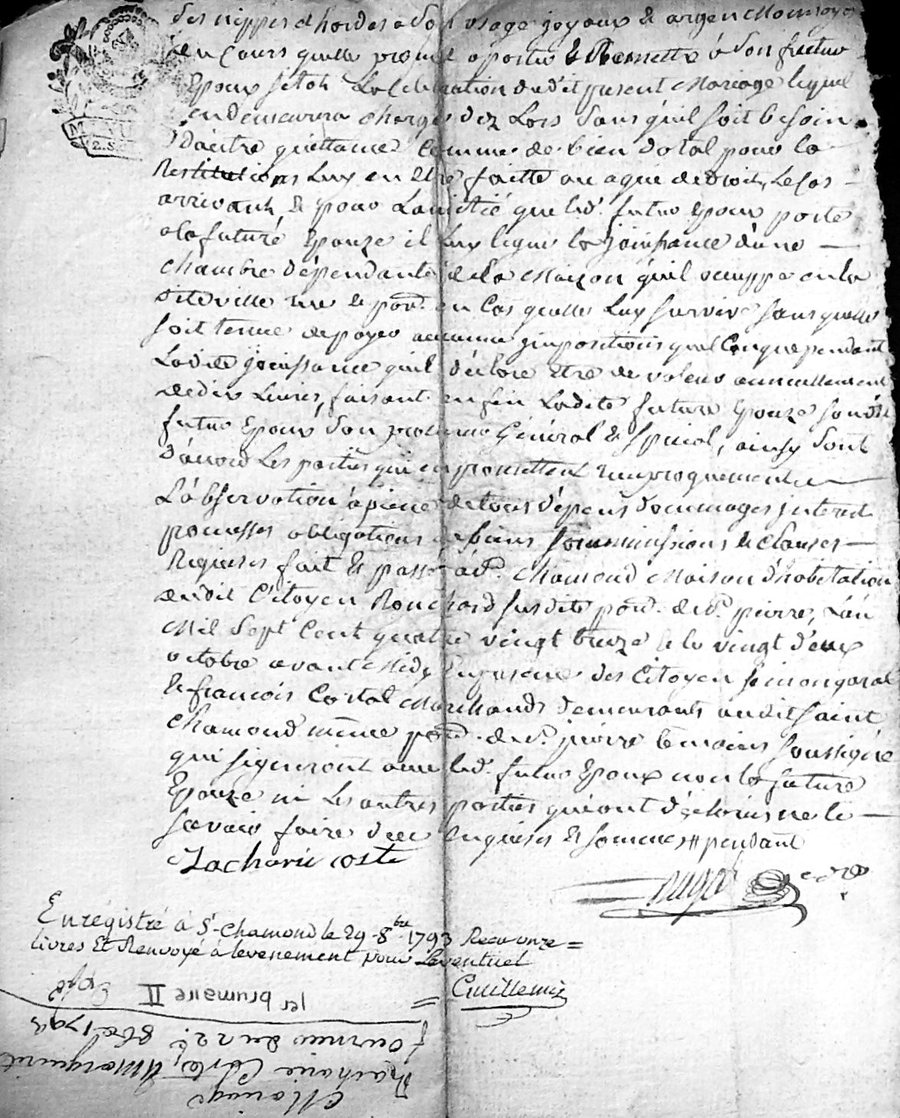 des nippes et hardes a son usage joyaux et argent monnoyé
en Cours quelle promet apporter & Remettre à son futur
Epoux sitôt La Celebration dudit present Mariage lequel
en demeurera chargé dez Lors Sans quil soit besoin
d'autre quittance Comme de bien dotal pour la
Restitution Luy en être faitte ou a que de Droit, Le Cas
arrivant, & pour Lamitié que led. futur Epoux porte
a la future Epouze il luy legue la Jouissance d'une
chambre dépendante de la Maison quil occuppe en la
ditte ville rue & par. en Cas quelle Luy survive sans quelle
soit tenue de payer aucune impositions quel Conque pendant
Ladite jouissance quil déclare Etre de valeur annuellement
de dix Livres, faisant enfin Ladite future Epouze sondit
futur Epoux son procureur Général & Special, ainsy Sont
d'accord Les parties qui en promettent reciproquement
L'observation à peine de tous dépens dommages interet
promesses obligations de biens Soummissions & Clauses
Requises fait & passé a St. Chamond Maison d'habitation
dudit Citoyen Rouchard susdite par. de St. pierre, L'an
Mil Sept Cent quatre vingt treize & le vingt deux
octobre avant Midy En presence des Citoyen Simon
& françois Costal Marchands demeurants audit Saint
Chamond même par. de St. pierre temoins Soussigné
qui signeront avec led. futur Epoux non la future
Epouze ni Les autres parties qui ont déclaré ne le
savoir faire de ce enquises & sommés # pendant
Zacharie coste
Enrégistré à St-Chamond le 29 8bre 1793 Reçu onze
livres Et Renvoyé à levenement pour Leventuel
Guillemin
1er brumaire II Expé
Mariage
Zacharie Coste, Marguerite
fournier du 22e 8bre 1793